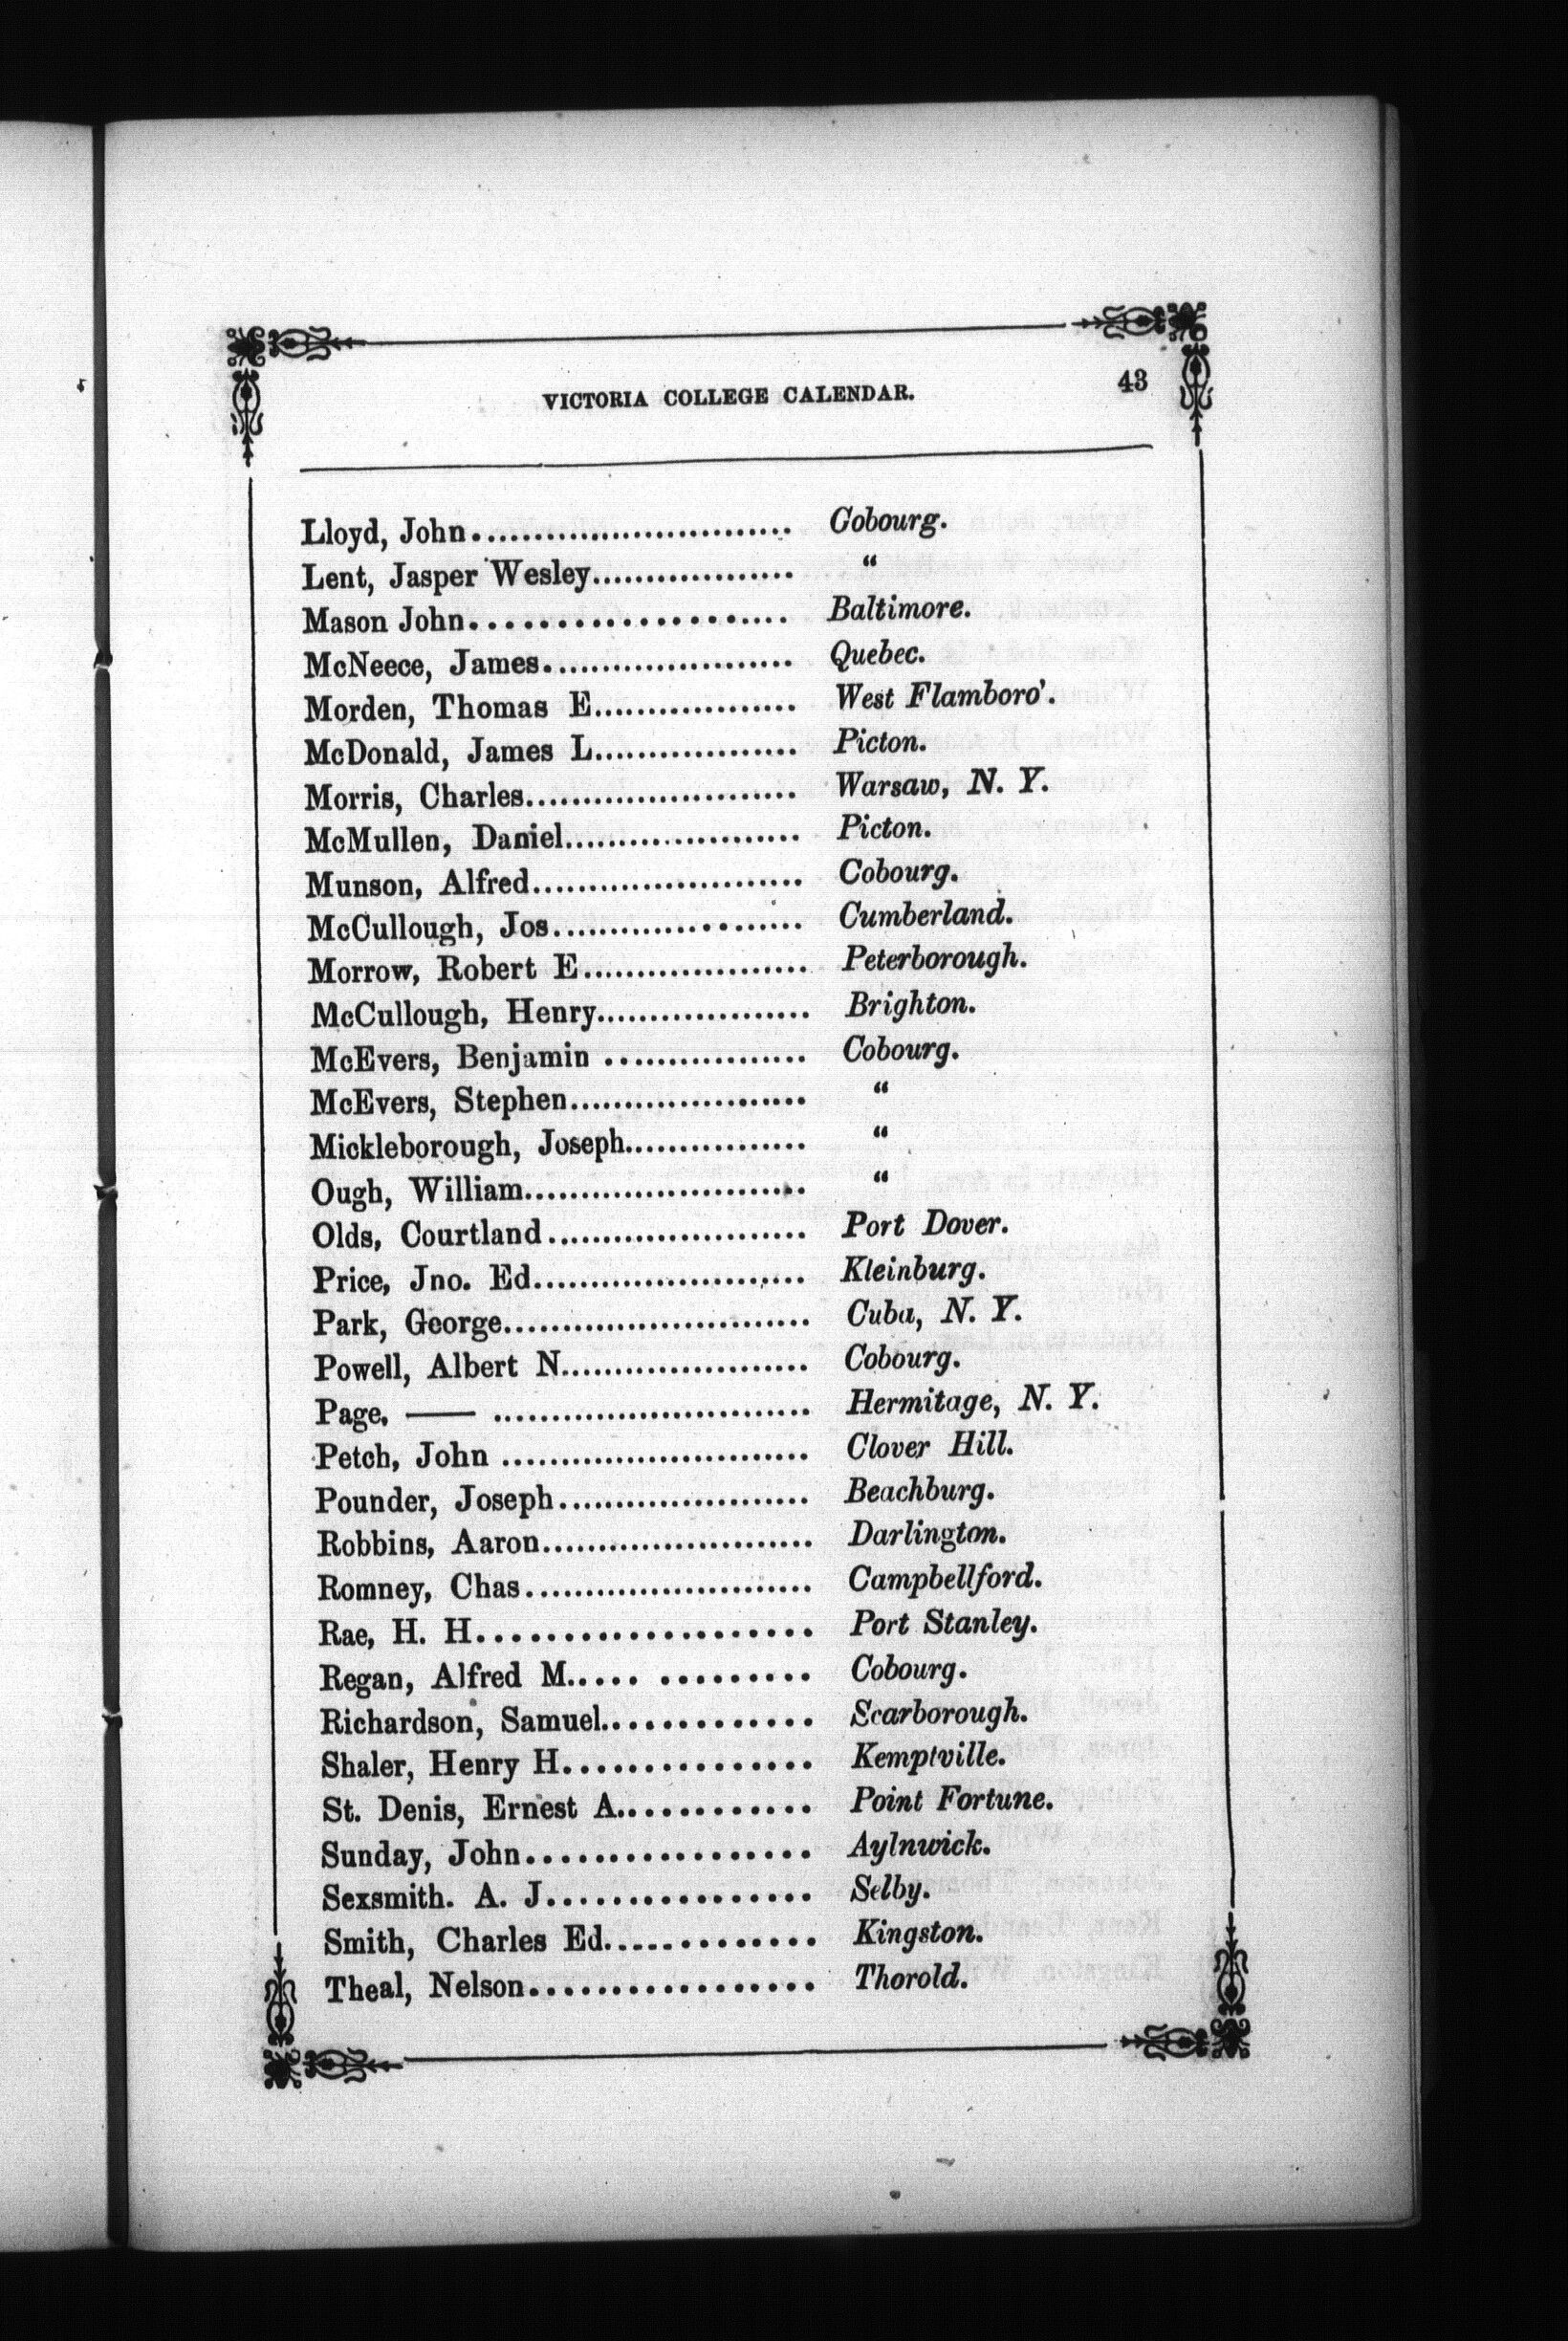 VICTORIA COLLEGE CALENDAR. 43
Lloyd, John............................ Gobourg.
Lent, Jasper Wesley.................. “
Mason John...................... Baltimore.
McNeece, James...................... Quebec.
Morden, Thomas E.................. West Flamboro'.
McDonald, James L.................. Picton.
Morris, Charles........................ Warsaw, N. Y.
McMullen, Daniel.................... Picton.
Munson, Alfred........................ Cobourg.
McCullough, Jos...................... Cumberland.
Morrow, Robert E.................... Peterborough.
McCullough, Henry................... Brighton.
McEvers, Benjamin ................. Cobourg.
McEvers, Stephen..................... “
Mickleborough, Joseph................ “
Ough, William......................... “
Olds, Courtland....................... Port Dover.
Price, Jno. Ed........................ Kleinburg.
Park, George........................... Cuba, N. Y.
Powell, Albert N...................... Cobourg.
Page, —— ............................ Hermitage, N. Y.
Petch, John ........................... Clover Hill.
Pounder, Joseph...................... Beachburg.
Robbins, Aaron........................ Darlington.
Romney, Chas......................... Campbellford.
Rae, H. H..................... Port Stanley.
Regan, Alfred M..... ......... Cobourg.
Richardson, Samuel.............. Scarborough.
Shaler, Henry H............... Kemptville.
St. Denis, Ernest A............ Point Fortune.
Sunday, John.................. Aylnwick.
Sexsmith. A. J................ Selby.
Smith, Charles Ed.............. Kingston.
Theal, Nelson.................. Thorold.